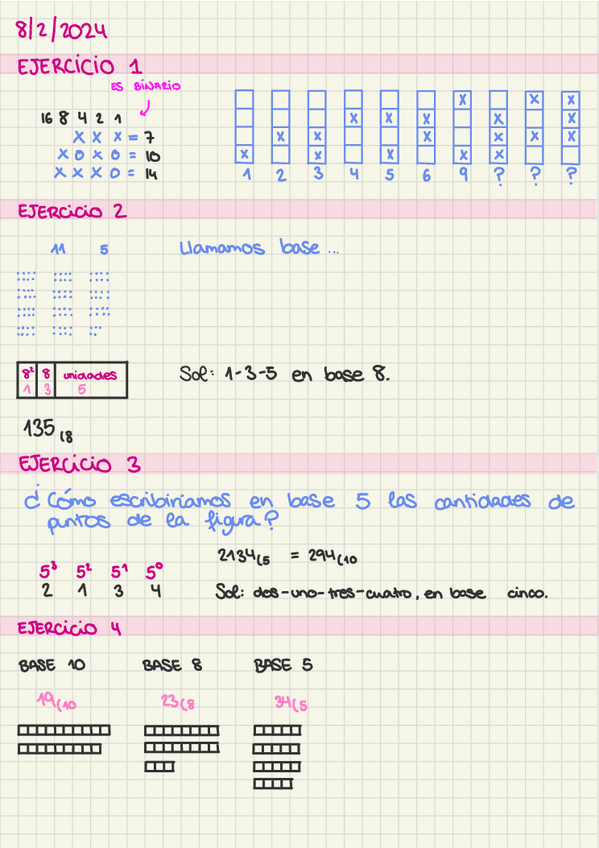 8/2/2024
EJERCICIO 1
ES BINARIO
16 8 4 2 1
X X X = 7
X O X O = 10
X X X O = 14
X X X
X X X X
X X X X X X
X X X X X X
1 2 3 4 5 6 9 ? ? ?
EJERCICIO 2
11 5
Llamamos base ...
8² 8 unidades
1 3 5
Sol: 1-3-5 en base 8.
135(8
EJERCICIO 3
¿Cómo escribiríamos en base 5 las cantidades de
puntos de la figura?
2134(5 = 294(10
5³ 5² 5¹ 5⁰
2 1 3 4
Sol: dos-uno-tres-cuatro, en base cinco.
EJERCICIO 4
BASE 10 BASE 8 BASE 5
19(10 23(8 34(5